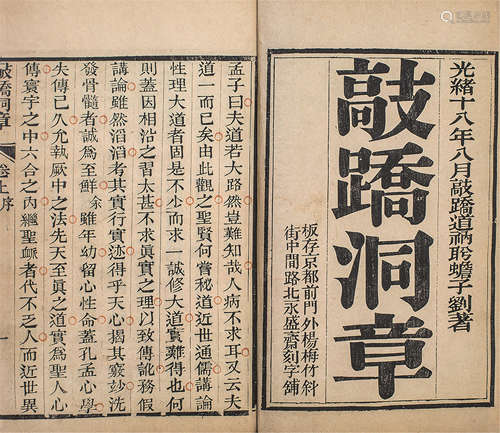 光緒十八年八月敲蹻道衲聆蟾子劉著
敲蹻洞章
板存京都前門外楊梅竹斜
街中間路北永盛齋刻字鋪
孟子曰夫道若大路然豈難知哉人病不求耳又云夫
道一而已矣由此觀之聖賢何嘗秘道近世通儒講論
性理大道者固是不少而求一誠修大道實難得也何
則蓋因相沿之習太甚不求真實之理以致傳訛務假
講論雖然滔滔考其實行實迹得乎天心揭其竅妙洗
發骨髓者誠爲至鮮余雖年幼留心性命蓋孔孟心學
失傳已久允執厥中之法先天至真之道實爲聖人心
傳寰宇之中六合之內繼聖脈者代不乏人而近世異
敲蹻洞章
卷上序